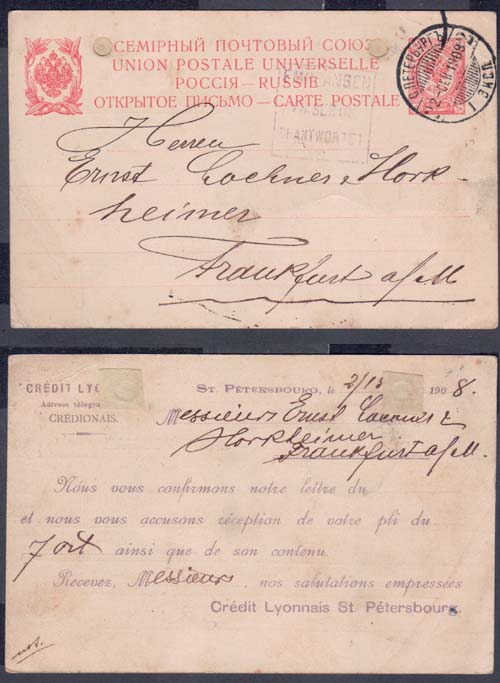 СЕМІРНЫЙ ПОЧТОВЫЙ СОЮЗ
UNION POSTALE UNIVERSELLE
РОССІЯ—RUSSIE
ОТКРЫТОЕ ПИСЬМО—CARTE POSTALE
EMPFANGEN
BEANTWORTET
С.ПЕТЕРБУРГЪ
Herren
Ernst Lochner & Hork-
heimer
Frankfurt a/M
CRÉDIT LYO
Adresse télégra
CRÉDIONAIS.
St. Pétersbourg, le 2/15 1908.
Messieurs Ernst Lochner &
Horkheimer
Frankfurt a/M.
Nous vous confirmons notre lettre du
et nous vous accusons réception de votre pli du
ainsi que de son contenu.
Recevez, Messieurs, nos salutations empressées
Crédit Lyonnais St. Pétersbourg.